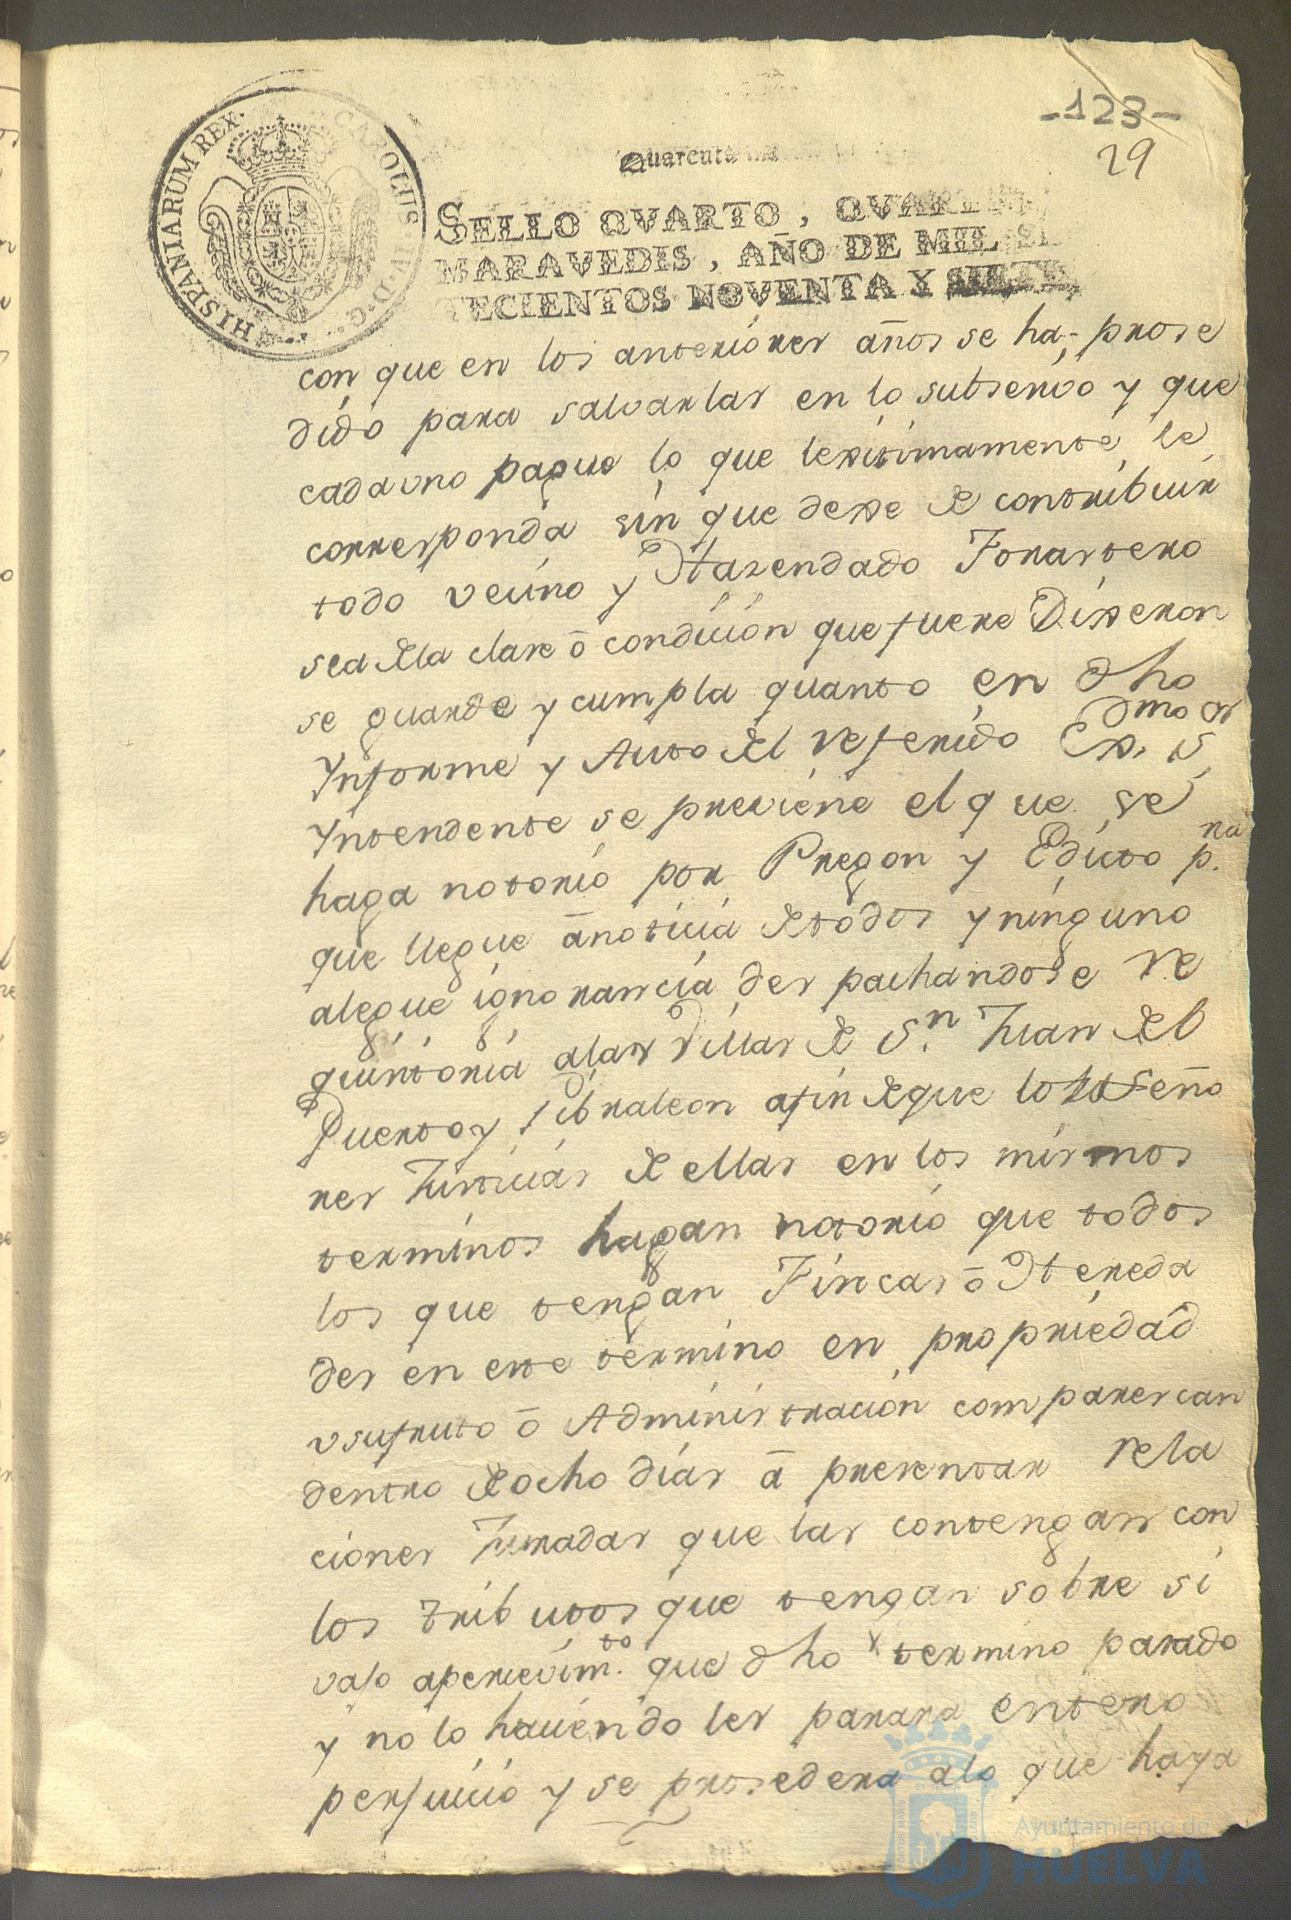 -123-
29
CAROLUS IV. D. G. HISPANIARUM REX.
Quarenta
SELLO QVARTO, QVAREN
MARAVEDIS, AÑO DE MIL SE
TECIENTOS NOVENTA Y SIETE
con que en los anteriores años se ha prose
dido para salvarlas en lo subsesivo y que
cada uno pague lo que lexitimamente le
corresponda sin que dexe de contribuir
todo vecino y Hazendado Forastero
sea dela clase ō condicion que fuere Dixeron
se guarde y cumpla quanto en dho
Ynforme y Auto del referido Exmo Sr
Yntendente se previene el que se
haga notorio por Pregon y Edicto p.ra
que llegue ā noticia de todos y ninguno
alegue ignorancia despachandose re
quisitoria alas Villas de Sn. Juan del
Puerto y Gibraleon afin deque los Seño
res Justicias de ellas en los mismos
terminos hagan notorio que todos
los que tengan Fincas ō Hereda
des en este termino en propriedad
usufruto ō Administracion comparescan
dentro de ocho dias ā presentar rela
ciones Juradas que las contengan con
los tributos que tengan sobre si
vajo apercevim.to que dho termino pasado
y no lo haciendo les parara entero
perjuicio y se prosedera alo que haya
Ayuntamiento de
HUELVA